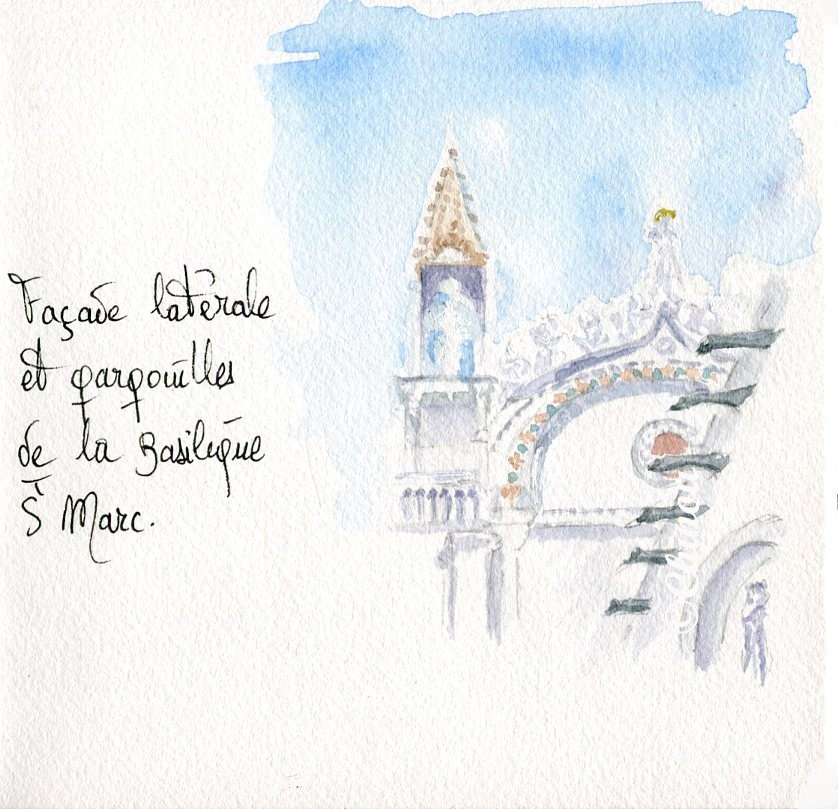 Façade latérale
et gargouilles
de la Basilique
S^t Marc.